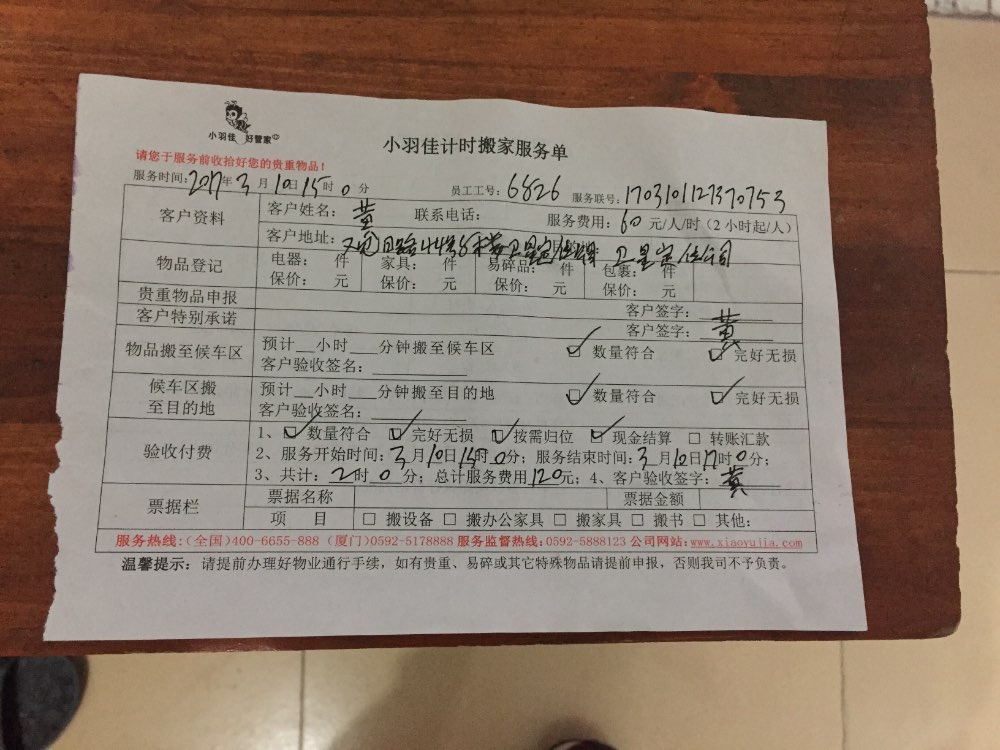 小羽佳 好管家
小羽佳计时搬家服务单
请您于服务前收拾好您的贵重物品！
服务时间：2017年3月10日15时0分 员工工号：6826 服务联号：170310112737 0753
客户资料 客户姓名：黄 联系电话： 服务费用：60元/人/时（2小时起/人）
客户地址： 卫星定位
物品登记 电器： 件 家具： 件 易碎品： 件 包裹： 件
保价： 元 保价： 元 保价： 元 保价： 元
贵重物品申报 客户签字：
客户特别承诺 客户签字：黄
物品搬至候车区 预计__小时___分钟搬至候车区 ☑ 数量符合 ☑ 完好无损
客户验收签名：
候车区搬至目的地 预计__小时___分钟搬至目的地 ☑ 数量符合 ☑ 完好无损
客户验收签名：
验收付费 1、☑数量符合 ☑完好无损 ☑按需归位 ☑现金结算 □ 转账汇款
2、服务开始时间：3月10日15时0分；服务结束时间：3月10日17时0分；
3、共计：2时0分；总计服务费用120元；4、客户验收签字：黄
票据栏 票据名称 票据金额
项 目 □ 搬设备 □ 搬办公家具 □ 搬家具 □ 搬书 □ 其他：
服务热线：（全国）400-6655-888（厦门）0592-5178888 服务监督热线：0592-5888123 公司网站：www.xiaoyujia.com
温馨提示：请提前办理好物业通行手续，如有贵重、易碎或其它特殊物品请提前申报，否则我司不予负责。